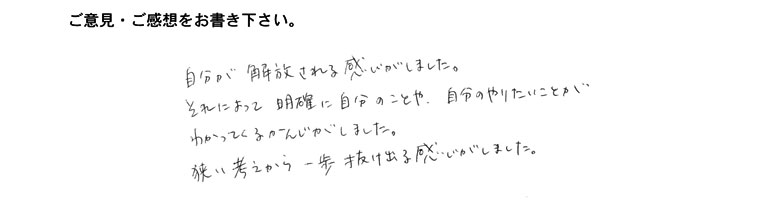 ご意見・ご感想をお書き下さい。
自分が解放される感じがしました。
それによって明確に自分のことや、自分のやりたいことが
わかってくるかんじがしました。
狭い考えから一歩抜け出る感じがしました。